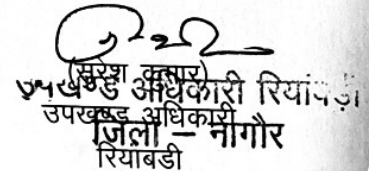 (सुरेश कुमार)
उपखण्ड अधिकारी रियांबड़ी
उपखण्ड अधिकारी
जिला – नागौर
रियाबडी